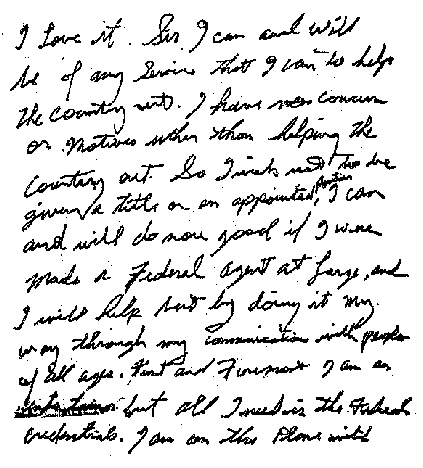 I Love it. Sir, I can and will
be of any Service that I can to help
the country out. I have no concern
or Motives other than helping the
Country out. So I wish not to be
given a title or an appointed position, I can
and will do more good if I were
made a Federal Agent at Large, and
I will help but by doing it my
way through my communication with people
of all ages. First and Foremost I am an
but all I need is the Federal
credentials. I am on this Plane with